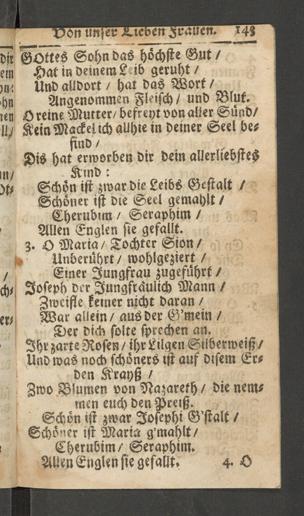 Von unser Lieben Frauen. 143
GOttes Sohn das höchste Gut /
Hat in deinem Leib geruht /
Und alldort / hat das Wort /
Angenommen Fleisch / und Blut.
O reine Mutter / befreyt von aller Sünd /
Kein Mackel ich allhie in deiner Seel be-
find /
Dis hat erworben dir dein allerliebstes
Kind :
Schön ist zwar die Leibs Gestalt /
Schöner ist die Seel gemahlt /
Cherubim / Seraphim /
Allen Englen sie gefallt.
3. O Maria / Tochter Sion /
Unberührt / wohlgeziert /
Einer Jungfrau zugeführt /
Joseph der Jungfräulich Mann /
Zweifle keiner nicht daran /
War allein / aus der G'mein /
Der dich solte sprechen an.
Ihr zarte Rosen / ihr Lilgen Silberweiß /
Und was noch schöners ist auf disem Er-
den Krayß /
Zwo Blumen von Nazareth / die nem-
men euch den Preiß.
Schön ist zwar Josephi G'stalt /
Schöner ist Maria g'mahlt /
Cherubim / Seraphim.
Allen Englen sie gefallt. 4. O